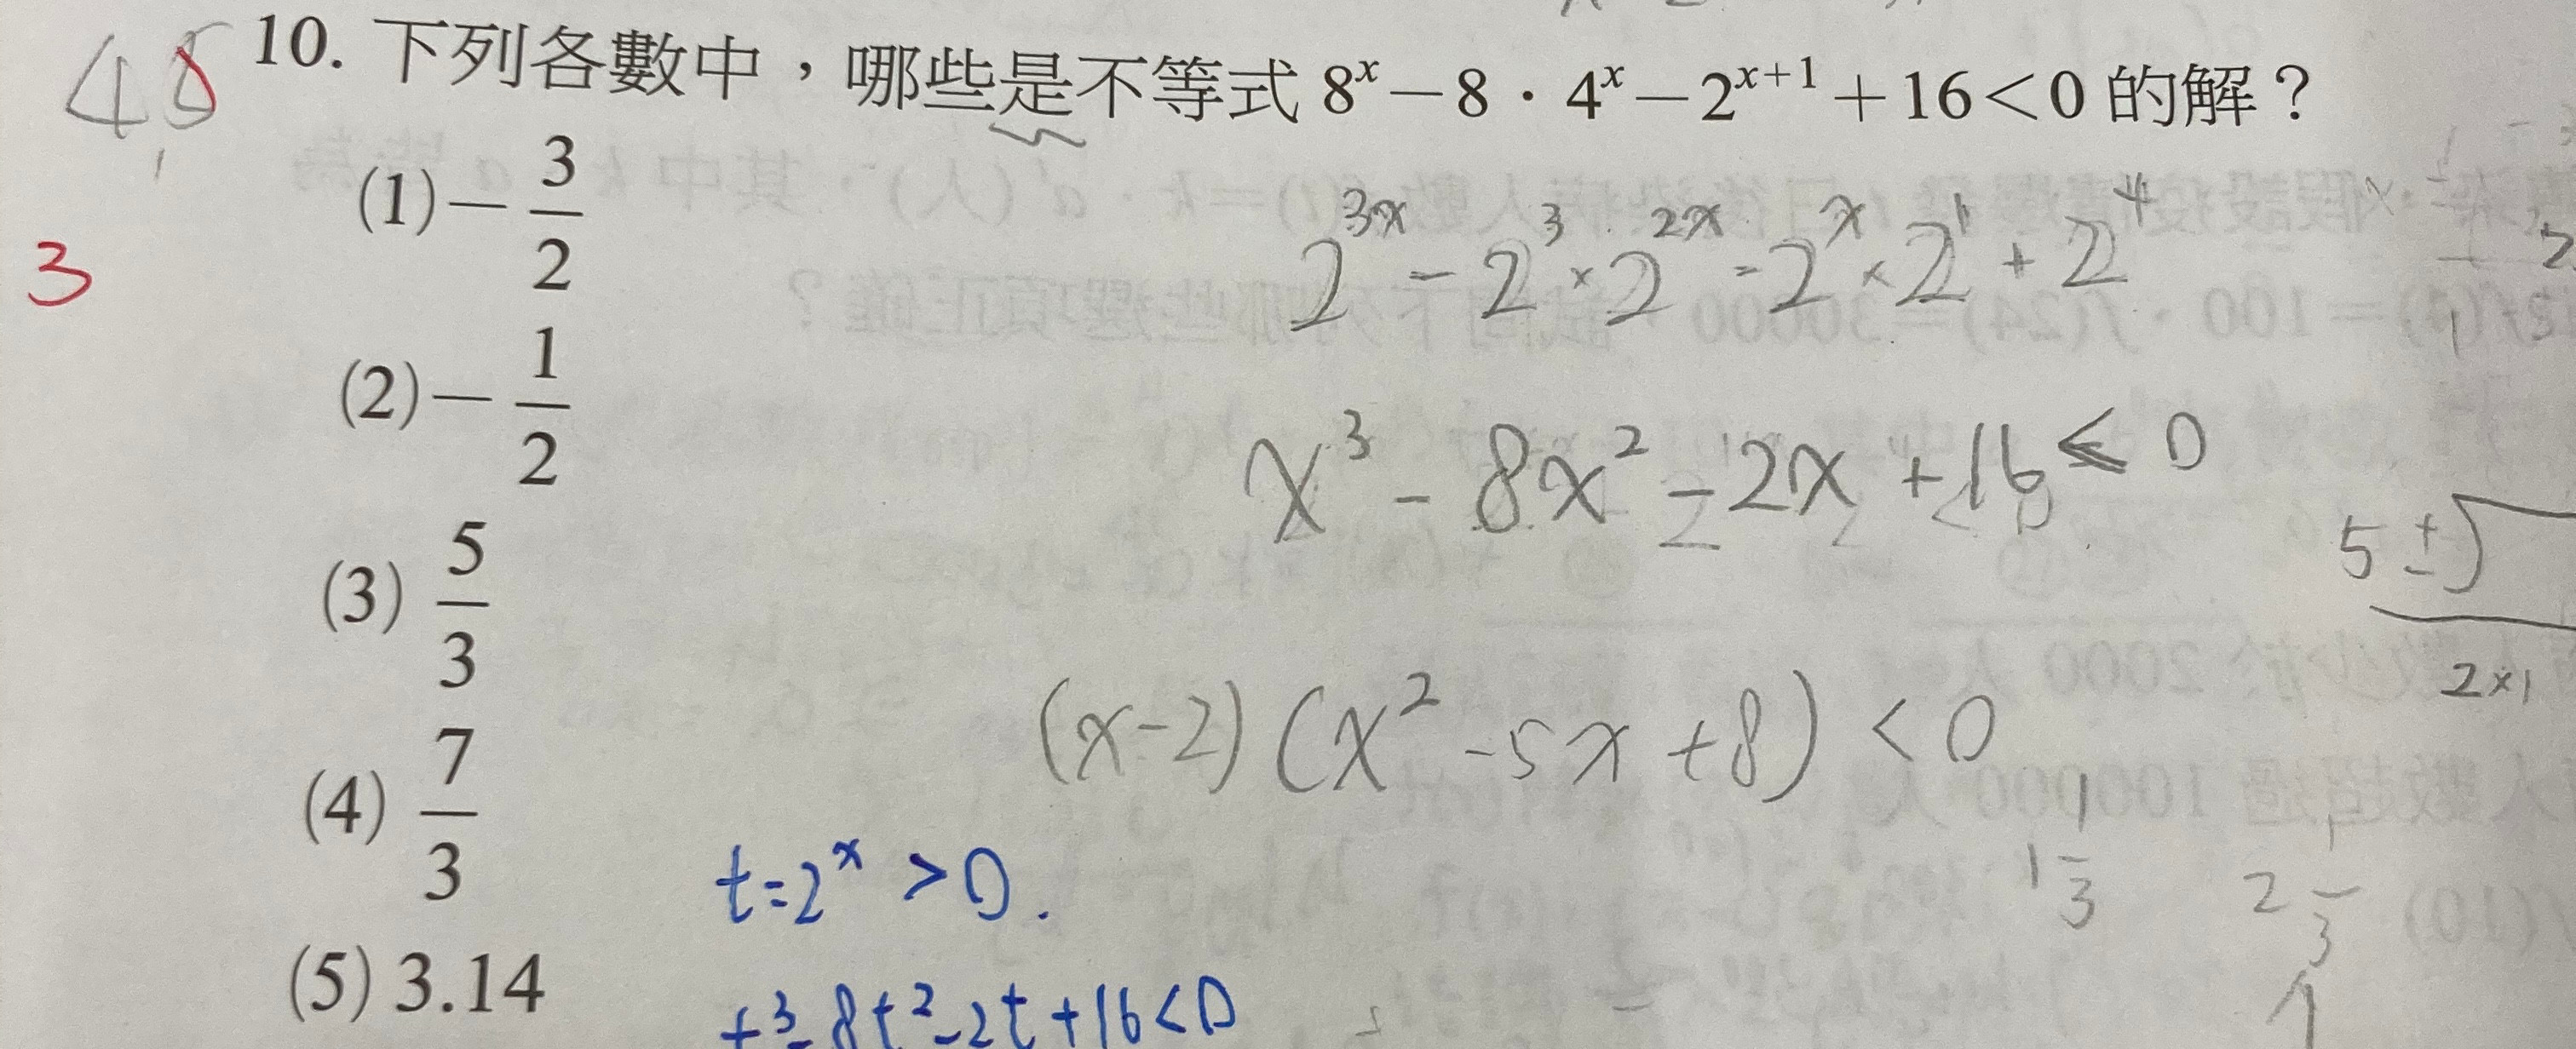 4,5
10. 下列各數中，哪些是不等式 8^x－8．4^x－2^{x+1}＋16＜0 的解？
(1)－3/2
3
2^{3x} - 2^3 × 2^{2x} - 2^x × 2^1 + 2^4
(2)－1/2
x^3 - 8x^2 - 2x + 16 < 0
(3) 5/3
5±√
2×1
(x-2)(x^2 -5x +8) < 0
(4) 7/3
1 1/3
2 1/3
t=2^x > 0.
(5) 3.14
t^3-8t^2-2t+16<0